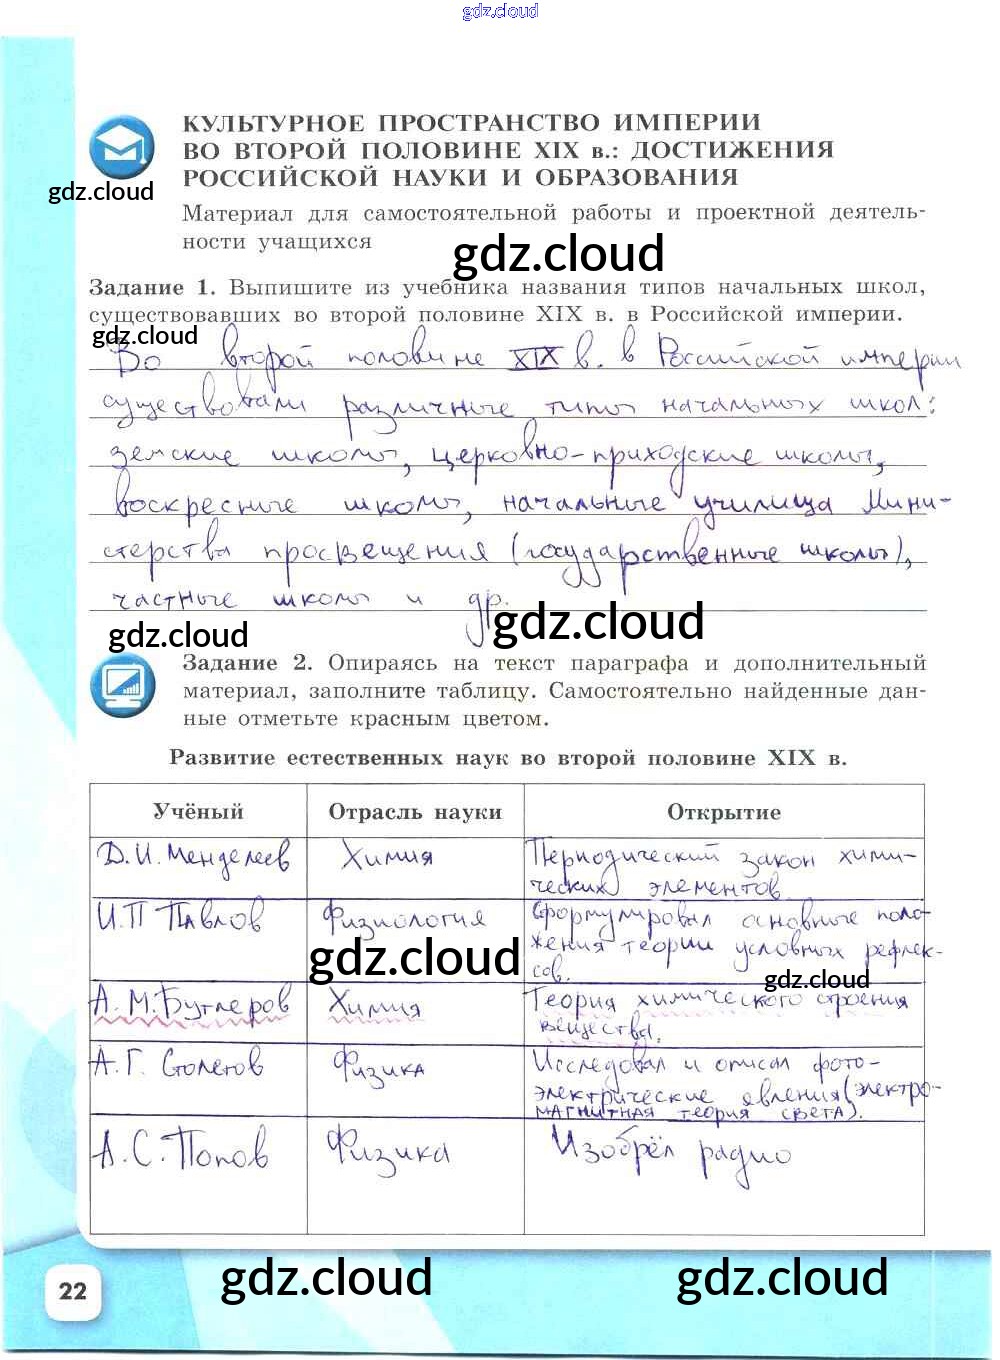 gdz.cloud
КУЛЬТУРНОЕ ПРОСТРАНСТВО ИМПЕРИИ
ВО ВТОРОЙ ПОЛОВИНЕ XIX в.: ДОСТИЖЕНИЯ
РОССИЙСКОЙ НАУКИ И ОБРАЗОВАНИЯ
gdz.cloud
Материал для самостоятельной работы и проектной деятель-
ности учащихся
gdz.cloud
Задание 1. Выпишите из учебника названия типов начальных школ,
существовавших во второй половине XIX в. в Российской империи.
gdz.cloud
Во второй половине XIX в. в Российской империи
существовали различные типы начальных школ:
земские школы, церковно-приходские школы,
воскресные школы, начальные училища Мини-
стерства просвещения (государственные школы),
частные школы и др.
gdz.cloud
gdz.cloud
Задание 2. Опираясь на текст параграфа и дополнительный
материал, заполните таблицу. Самостоятельно найденные дан-
ные отметьте красным цветом.
Развитие естественных наук во второй половине XIX в.
Учёный Отрасль науки Открытие
Д.И. Менделеев Химия Периодический закон хими-
ческих элементов
И.П Павлов Физиология Сформулировал основные поло-
жения теории условных рефлек-
сов.
gdz.cloud
gdz.cloud
А.М.Бутлеров Химия Теория химического строения
вещества.
А.Г. Столетов Физика Исследовал и описал фото-
электрические явления (электро-
магнитная теория света).
А.С. Попов Физика Изобрёл радио
gdz.cloud
gdz.cloud
22